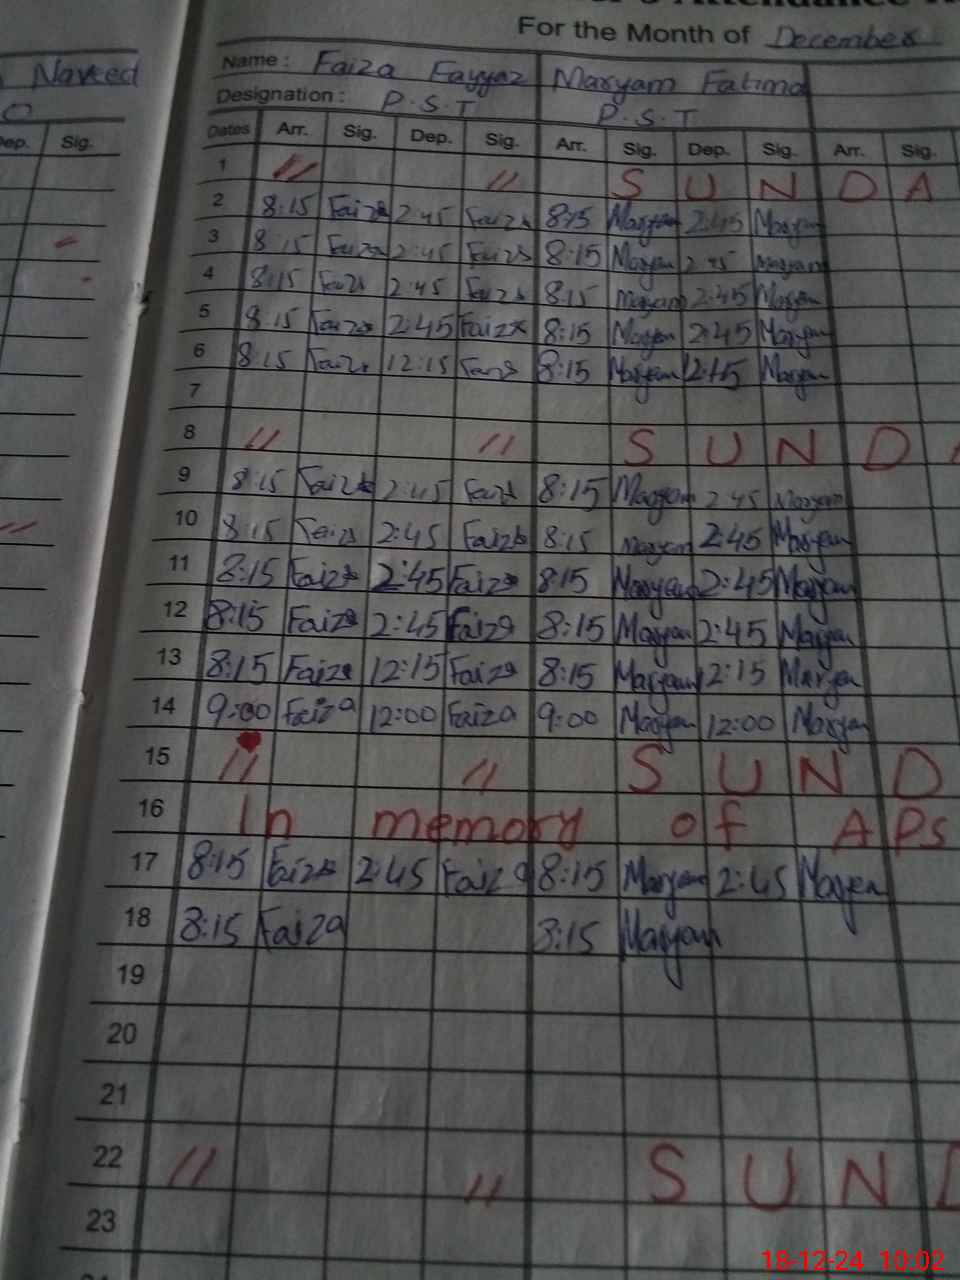 For the Month of December
Naveed
Name : Faiza Fayyaz Maryam Fatima
Designation : P.S.T P.S.T
Dep. Sig.
Dates Arr. Sig. Dep. Sig. Arr. Sig. Dep. Sig. Arr. Sig.
1 // // S U N D A
2 8:15 Faiza 2:45 Faiza 8:15 Maryam 2:45 Maryam
3 8:15 Faiza 2:45 Faiza 8:15 Maryam 2:45 Maryam
4 8:15 Faiza 2:45 Faiza 8:15 Maryam 2:45 Maryam
5 8:15 Faiza 2:45 Faiza 8:15 Maryam 2:45 Maryam
6 8:15 Faiza 12:15 Faiza 8:15 Maryam 12:15 Maryam
7
8 // // S U N D
9 8:15 Faiza 2:45 Faiza 8:15 Maryam 2:45 Maryam
10 8:15 Faiza 2:45 Faiza 8:15 Maryam 2:45 Maryam
11 8:15 Faiza 2:45 Faiza 8:15 Maryam 2:45 Maryam
12 8:15 Faiza 2:45 Faiza 8:15 Maryam 2:45 Maryam
13 8:15 Faiza 12:15 Faiza 8:15 Maryam 12:15 Maryam
14 9:00 Faiza 12:00 Faiza 9:00 Maryam 12:00 Maryam
15 // // S U N D
16 In memory of APS
17 8:15 Faiza 2:45 Faiza 8:15 Maryam 2:45 Maryam
18 8:15 Faiza 8:15 Maryam
19
20
21
22 // // S U N D
23
18-12-24 10:02